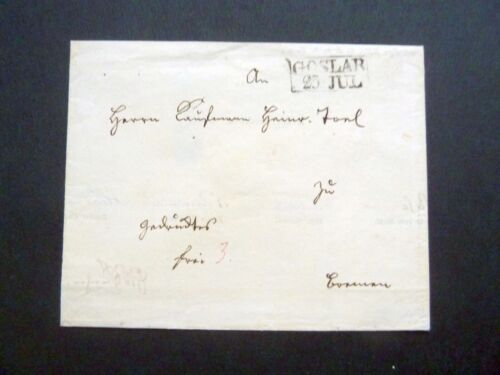 GOSLAR
23 JUL
An
Herrn Kaufmann Heinr. Toel
zu
gedrucktes
frei 3.
Bremen